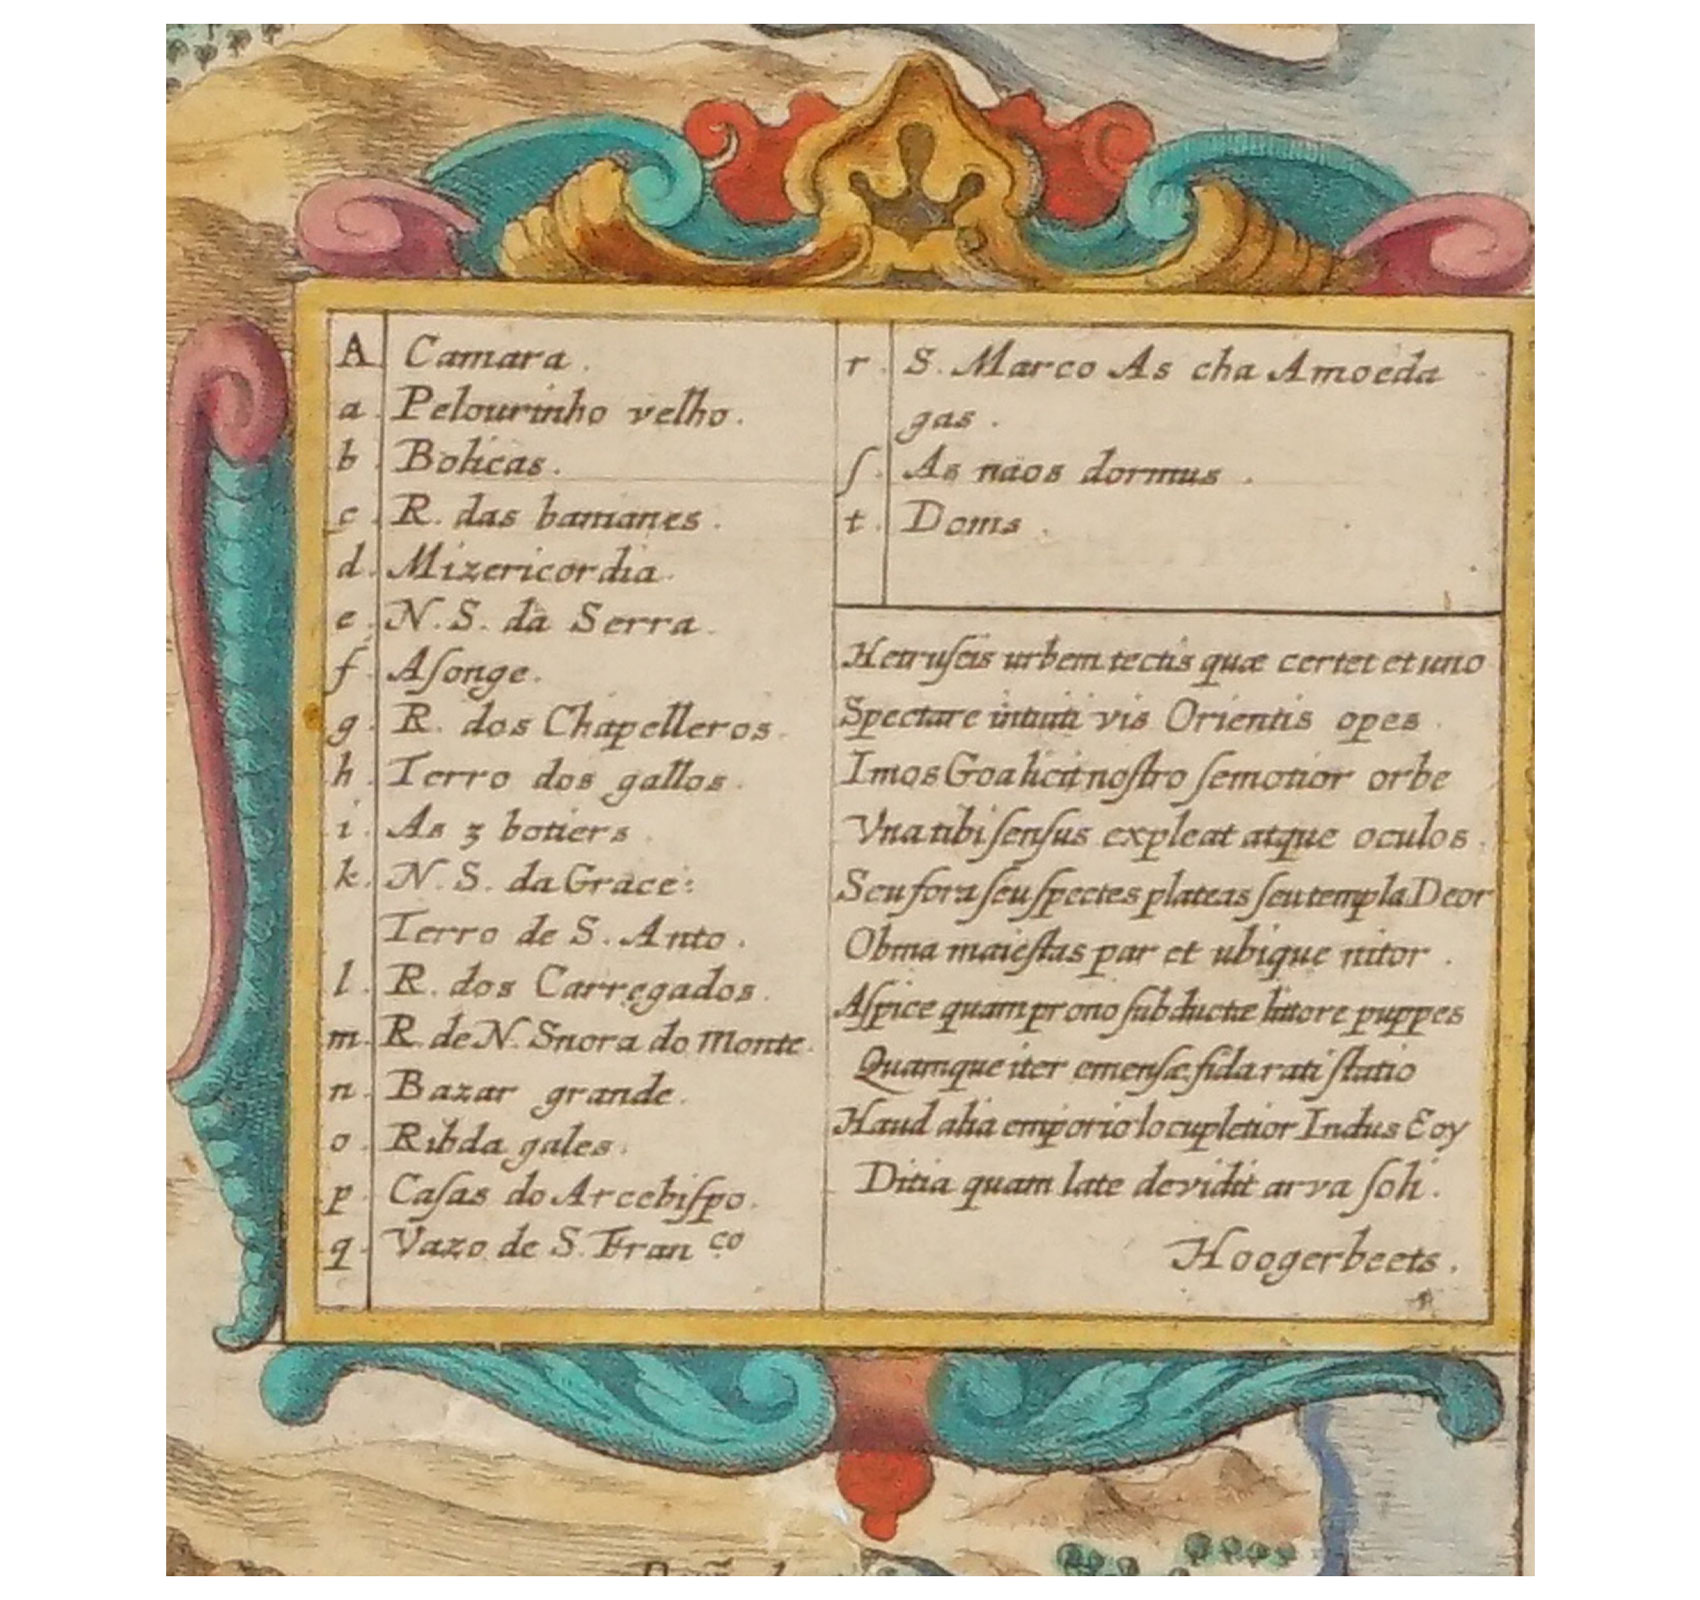 A Camara.
a. Pelourinho velho.
b. Boticas.
c. R. das banianes.
d. Mizericordia.
e. N. S. da Serra.
f. Aſonge.
g. R. dos Chapelleros.
h. Terro dos gallos.
i. As 3 botiers.
k. N. S. da Grace:
Terro de S. Anto.
l. R. dos Carregados.
m. R. de N. Snora do Monte.
n. Bazar grande.
o. Ribda gales.
p. Caſas do Arcebiſpo.
q. Vazo de S. Fran co
r. S. Marco As cha Amoeda
gas.
ſ. As naos dormus.
t. Doms.
Hetruſcis urbem tectis quæ certet et uno
Spectare intuiti vis Orientis opes.
Imos Goa licit noſtro ſemotior orbe
Vna tibi ſenſus expleat atque oculos.
Seu fora ſeu ſpectes plateas ſeu templa Deor
Obvia maieſtas par et ubique nitor.
Aſpice quam prono ſubductæ littore puppes
Quamque iter emenſæ fida rati ſtatio
Haud alia emporio locupletior Indus Eoy
Ditia quam late devidit arva ſoli.
Hoogerbeets.